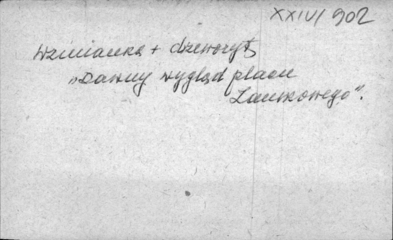 XXIV/902
Wzmianka + drzeworyt
"Dawny wygląd placu
Zamkowego".